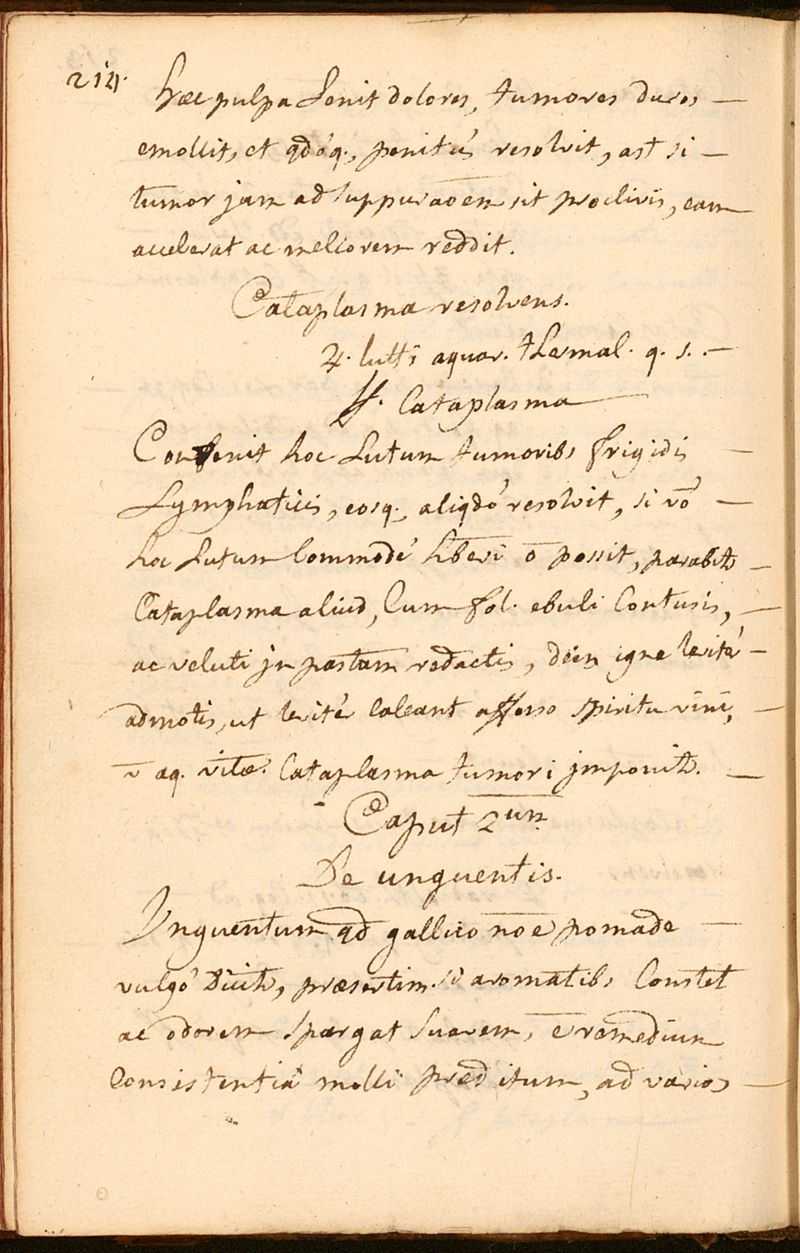 214.
hæc pulpa Lenit dolores, tumores duros —
emollit, et qdoq., penitús resolvit, ast si —
tumor jam ad suppuraōem sit proclivis, eam
accelerat ac meliorem reddit.
Cataplasma resolvens.
♃. lutti aquar. thermal. q. s. —
ff. Cataplasma —
Convenit hoc Lutum tumoribs frigidis —
Lymphaticis, eosq., aliqdó resolvit, si vō —
hoc Lutum Commodé hberi ō possit, parabitr —
Cataplasma aliud, Cum fol. ebuli Contusis, —
ac veluti jn pastam redactis, dein igne levitér —
admotis, ut levitér Caleant affuso spiritu vini, —
v̄ aq. vitæ. Cataplasma tumori jmponitr. —
Caput 2um
De unguentis.
Vnguentum qd gallico noe pomade —
vulgó Dicitr, præsertim si aromatibs Constet
ac odorem spargat suavem, ē remedium
Consistentiâ molli præditum, ad varios —